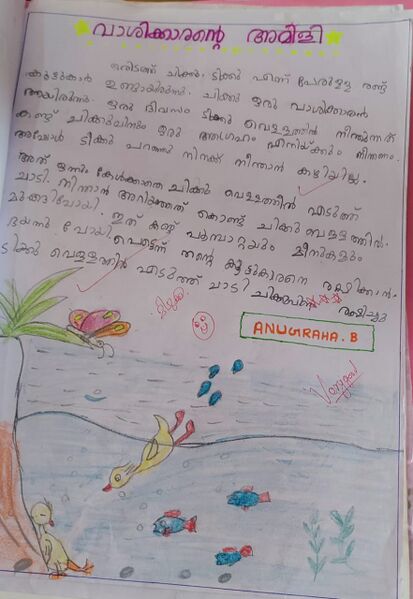 വാശിക്കാരന്റെ അമിളി
ഒരിടത്ത് ചിക്കു, ടിക്കു എന്ന് പേരുള്ള രണ്ട്
കൂട്ടുകാർ ഉണ്ടായിരുന്നു. ചിക്കു ഒരു വാശിക്കാരൻ
ആയിരുന്നു. ഒരു ദിവസം ടിക്കു വെള്ളത്തിൽ നീന്തുന്നത്
കണ്ട് ചിക്കുവിനും ഒരു ആഗ്രഹം എനിയ്ക്കും നീന്തണം.
അപ്പോൾ ടിക്കു പറഞ്ഞു നിനക്ക് നീന്താൻ കഴിയില്ല.
അത് ഒന്നും കേൾക്കാതെ ചിക്കു വെള്ളത്തിൽ എടുത്ത്
ചാടി. നീന്താൻ അറിയാത്തത് കൊണ്ട് ചിക്കു വെള്ളത്തിൽ
മുങ്ങിപോയി. ഇത് കണ്ട് പൂമ്പാറ്റയും മീനുകളും
ഭയന്നു പോയി. പെട്ടെന്ന് തന്റെ കൂട്ടുകാരനെ രക്ഷിക്കാൻ
ടിക്കു വെള്ളത്തിൽ എടുത്ത് ചാടി ചിക്കുവിനെ രക്ഷിച്ചു
ANUGRAHA. B